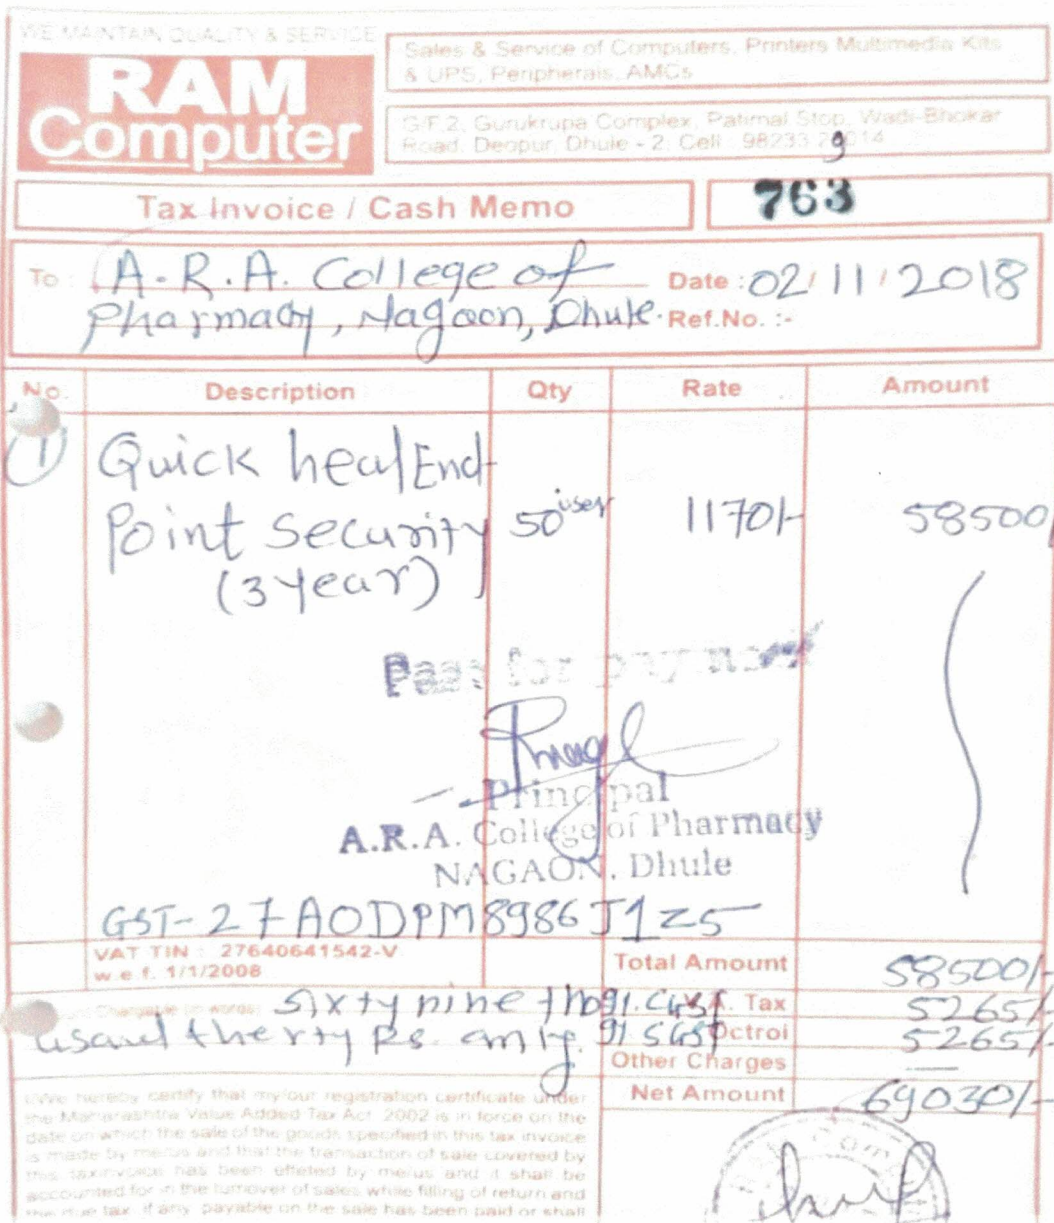 WE MAINTAIN QUALITY & SERVICE
RAM
Computer
Sales & Service of Computers, Printers Multimedia Kits
& UPS, Peripherals, AMCs
G/F.2, Gurukrupa Complex, Patimal Stop, Wadi-Bhokar
Road, Deopur, Dhule - 2. Cell : 98233 79014
9
Tax Invoice / Cash Memo
763
To : A.R.A. College of
Pharmacy, Nagaon, Dhule.
Date : 02/11/2018
Ref.No. :-
No. Description Qty Rate Amount
1 Quick heal End
Point Security 50 user 1170/- 58500/
(3 year)
Pass for payment
Principal
A.R.A. College of Pharmacy
NAGAON, Dhule
GST- 27AODPM8986J1Z5
VAT TIN : 27640641542-V
w.e.f. 1/1/2008
Total Amount 58500/-
Chargable (in words) sixty nine tho 9%. CGST Tax 5265/-
usand therty Rs. only. 9%. SGST Octroi 5265/-
Other Charges —
Net Amount 69030/-
I/We hereby certify that my/our registration certificate under
the Maharashtra Value Added Tax Act, 2002 is in force on the
date on which the sale of the goods specified in this tax invoice
is made by me/us and that the transaction of sale covered by
this taxinvoice has been effeted by me/us and it shall be
accounted for in the turnover of sales while filling of return and
the due tax, if any, payable on the sale has been paid or shall